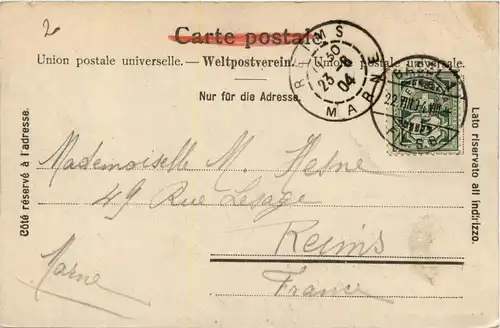 2
Carte postale
Union postale universelle. — Weltpostverein. — Unione postale universale.
Nur für die Adresse.
Côté réservé à l'adresse.
Lato riservato all indirizzo.
REIMS
23 -8
04
MARNE
Mademoiselle M.
49 Rue Lesage
Reims
Marne
France